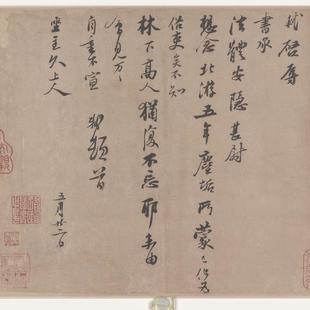 軾啓辱
書承
法體安隱甚慰
想念北游五年塵垢所蒙已化為
俗吏矣不知
林下高人猶復不忘耶未由
會見萬〻
自重不宣 軾頓首
坐主久上人
五月廿二日